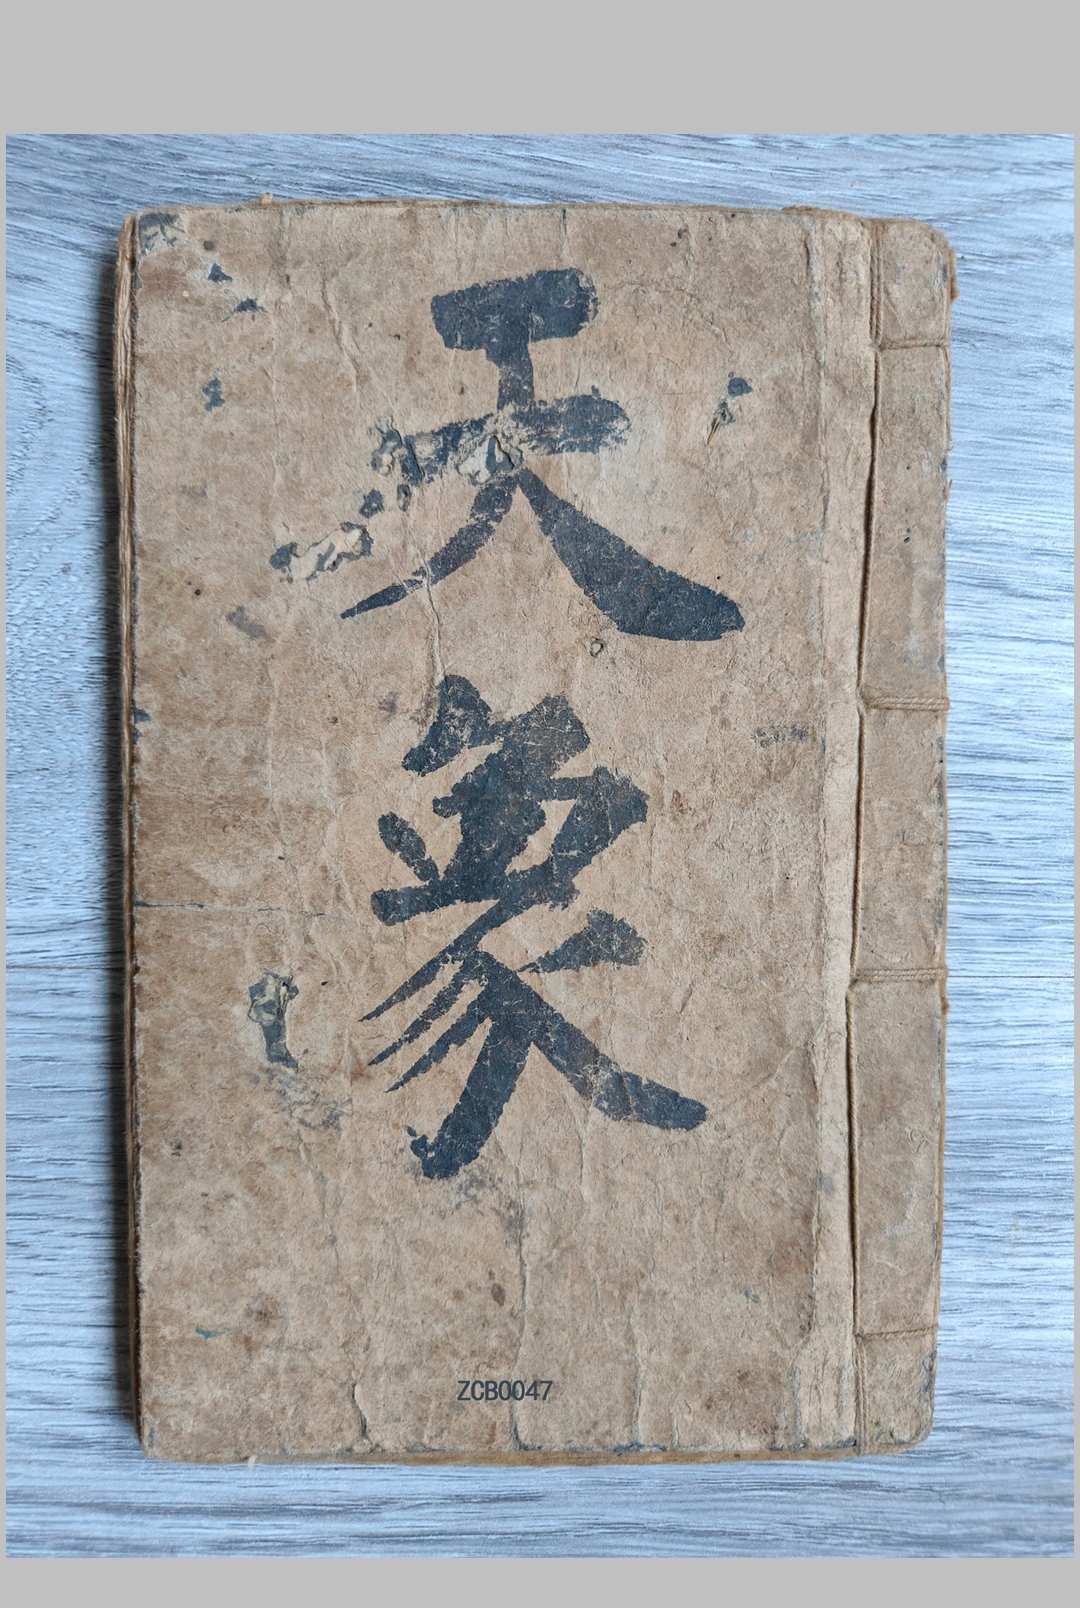 天
象
ZCB0047